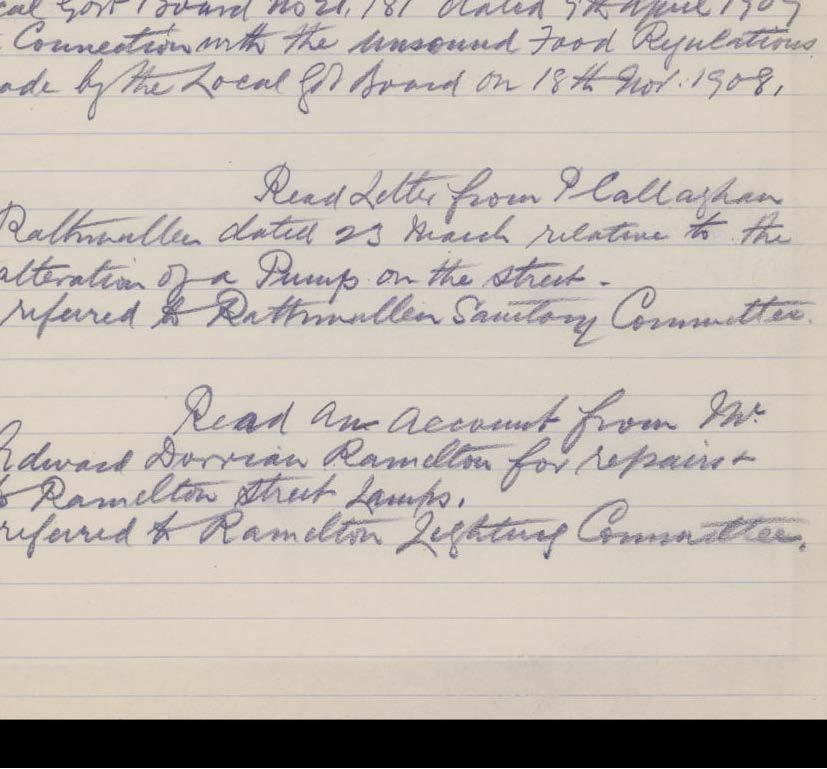 cal Govt Board No 21,181 dated 7th April 1909
Connection with the Unsound Food Regulations
ade by the Local Gvt Board on 18th Nov. 1908,
Read Letter from P Callaghan
Rathmullen dated 23 March relative to the
alteration of a Pump on the street.
referred to Rathmullen Sanitary Committee.
Read an Account from Mr.
Edward Dorrian Ramelton for repairs
to Ramelton Street Lamps.
referred to Ramelton Lighting Committee.